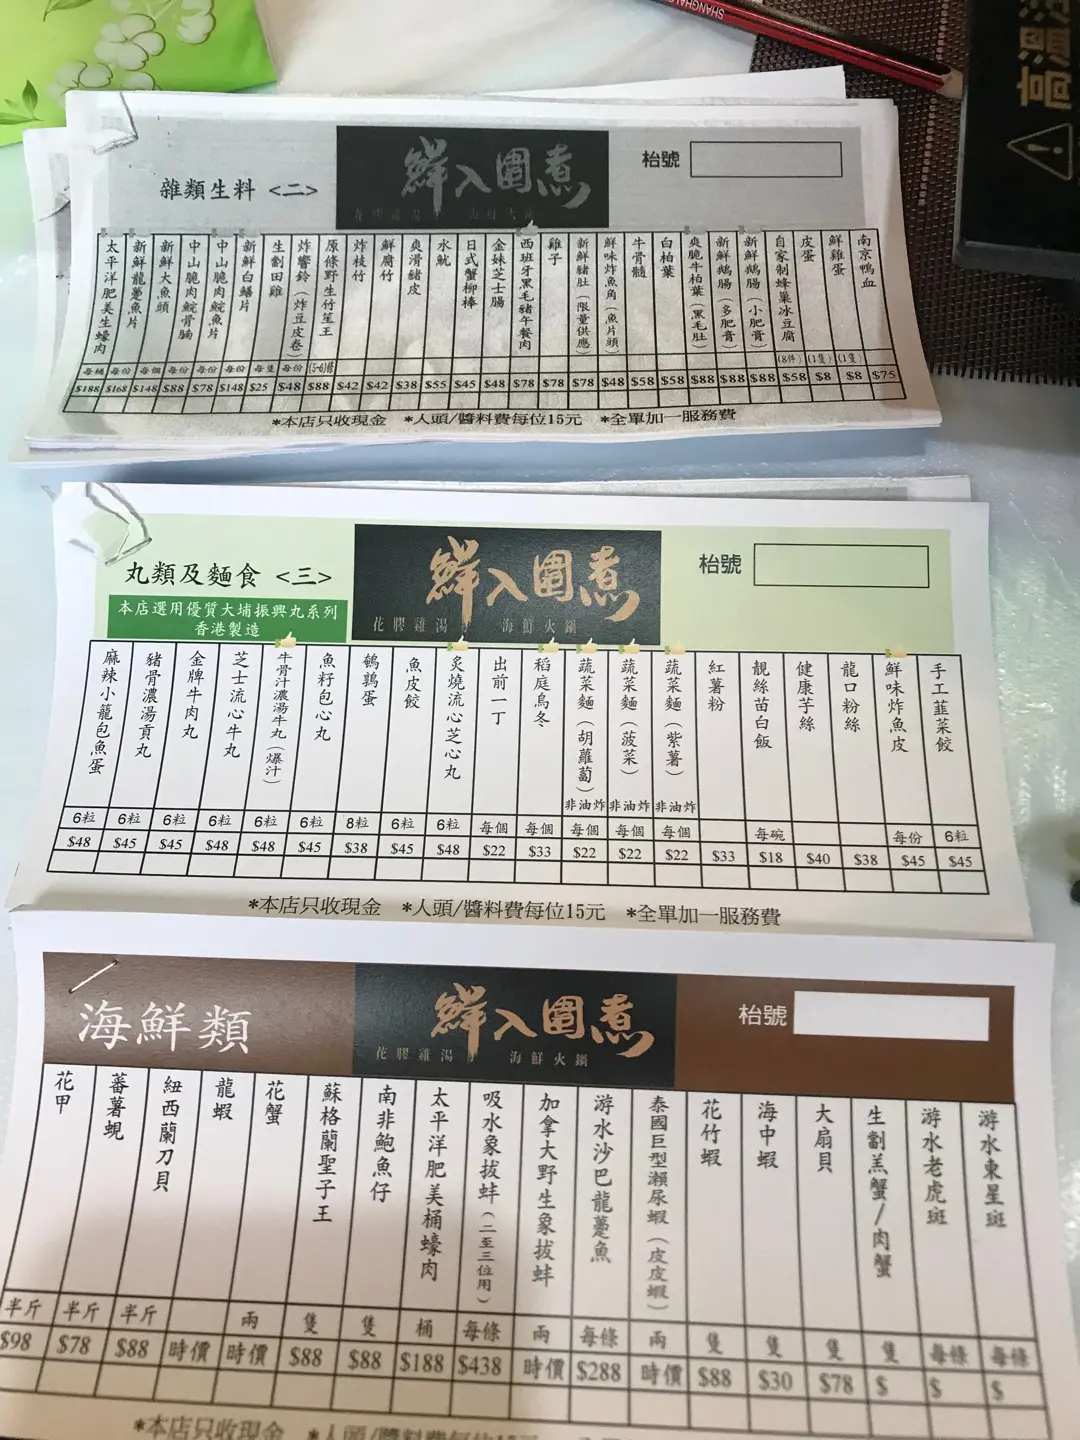 高溫
SHANGHAI
雜類生料 <二>
鮮入圍煮
花膠雞湯 海鮮火鍋
枱號
南京鴨血 $75
鮮雞蛋 (1隻) $8
皮蛋 (1隻) $8
自家制蜂巢冰豆腐 (8件) $58
新鮮鵝腸(小肥膏) $88
新鮮鵝腸(多肥膏) $88
爽脆牛柏葉(黑毛肚) $88
白柏葉 $58
牛骨髓 $58
鮮味炸魚角(魚片頭) $48
新鮮豬肚(限量供應) $78
雞子 $78
西班牙黑毛豬午餐肉 $78
金妹芝士腸 $48
日式蟹柳棒 $45
水魷 $55
爽滑豬皮 $38
鮮腐竹 $42
炸枝竹 $42
原條野生竹笙王 (5-6)條 $88
炸響鈴(炸豆皮卷) 每份 $48
生劏田雞 每隻 $25
新鮮白鱔片 每份 $148
中山脆肉鯇魚片 每份 $78
中山脆肉鯇骨腩 每份 $88
新鮮大魚頭 每個 $148
新鮮龍躉魚片 每份 $168
太平洋肥美生蠔肉 每桶 $188
*本店只收現金 *人頭/醬料費每位15元 *全單加一服務費
丸類及麵食 <三>
本店選用優質大埔振興丸系列
香港製造
鮮入圍煮
花膠雞湯 海鮮火鍋
枱號
手工韮菜餃 6粒 $45
鮮味炸魚皮 每份 $45
龍口粉絲 $38
健康芋絲 $40
靚絲苗白飯 每碗 $18
紅薯粉 $33
蔬菜麵(紫薯)非油炸 每個 $22
蔬菜麵(菠菜)非油炸 每個 $22
蔬菜麵(胡蘿蔔)非油炸 每個 $22
稻庭烏冬 每個 $33
出前一丁 每個 $22
炙燒流心芝心丸 6粒 $48
魚皮餃 6粒 $45
鵪鶉蛋 8粒 $38
魚籽包心丸 6粒 $45
牛骨汁濃湯牛丸(爆汁) 6粒 $48
芝士流心牛丸 6粒 $48
金牌牛肉丸 6粒 $45
豬骨濃湯貢丸 6粒 $45
麻辣小龍包魚蛋 6粒 $48
*本店只收現金 *人頭/醬料費每位15元 *全單加一服務費
海鮮類
鮮入圍煮
花膠雞湯 海鮮火鍋
枱號
游水東星斑 每條 $
游水老虎斑 每條 $
生劏羔蟹/肉蟹 隻 $
大扇貝 隻 $78
海中蝦 隻 $30
花竹蝦 隻 $88
泰國巨型瀨尿蝦(皮皮蝦) 兩 時價
游水沙巴龍躉魚 每條 $288
加拿大野生象拔蚌 兩 時價
吸水象拔蚌(二至三位用) 每條 $438
太平洋肥美桶蠔肉 桶 $188
南非鮑魚仔 隻 $88
蘇格蘭聖子王 隻 $88
花蟹 兩 時價
龍蝦 時價
紐西蘭刀貝 半斤 $88
蕃薯蜆 半斤 $78
花甲 半斤 $98
*本店只收現金 *人頭/醬料費每位15元